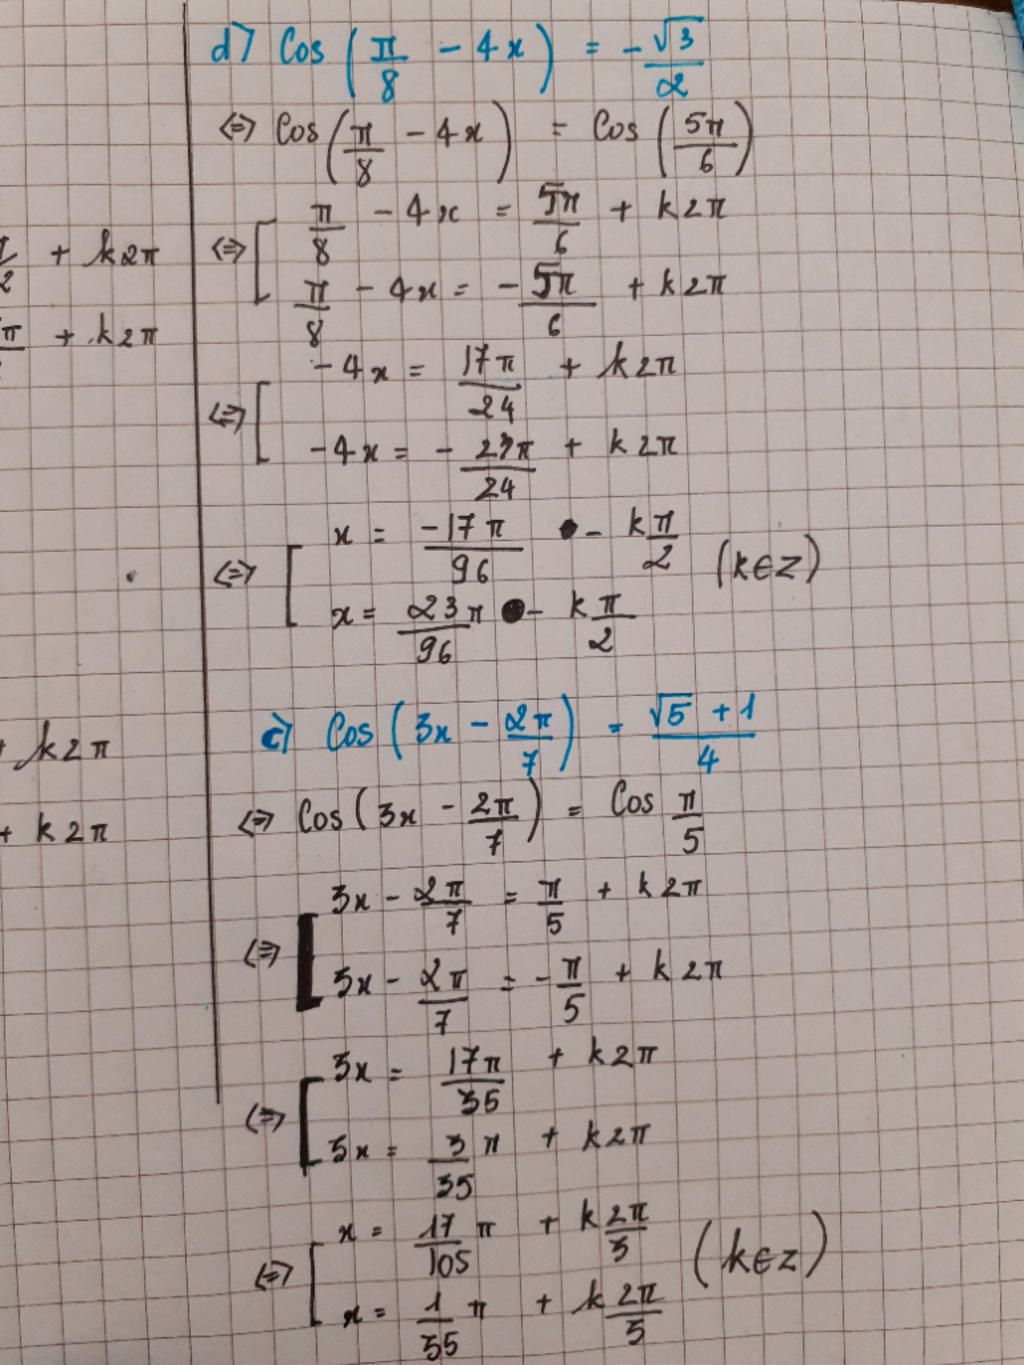 d) Cos(π/8 - 4x) = -√3/2
⇔ Cos(π/8 - 4x) = Cos(5π/6)
⇔ [ π/8 - 4x = 5π/6 + k2π
π/8 - 4x = -5π/6 + k2π
⇔ [ -4x = 17π/24 + k2π
-4x = -23π/24 + k2π
⇔ [ x = -17π/96 - kπ/2 (k∈Z)
x = 23π/96 - kπ/2
c) Cos(3x - 2π/7) = (√5 + 1)/4
⇔ Cos(3x - 2π/7) = Cos π/5
⇔ [ 3x - 2π/7 = π/5 + k2π
3x - 2π/7 = -π/5 + k2π
⇔ [ 3x = 17π/35 + k2π
3x = 3/35 π + k2π
⇔ [ x = 17/105 π + k 2π/3 (k∈Z)
x = 1/35 π + k 2π/3
+ k2π
π + k2π
+ k2π
+ k2π